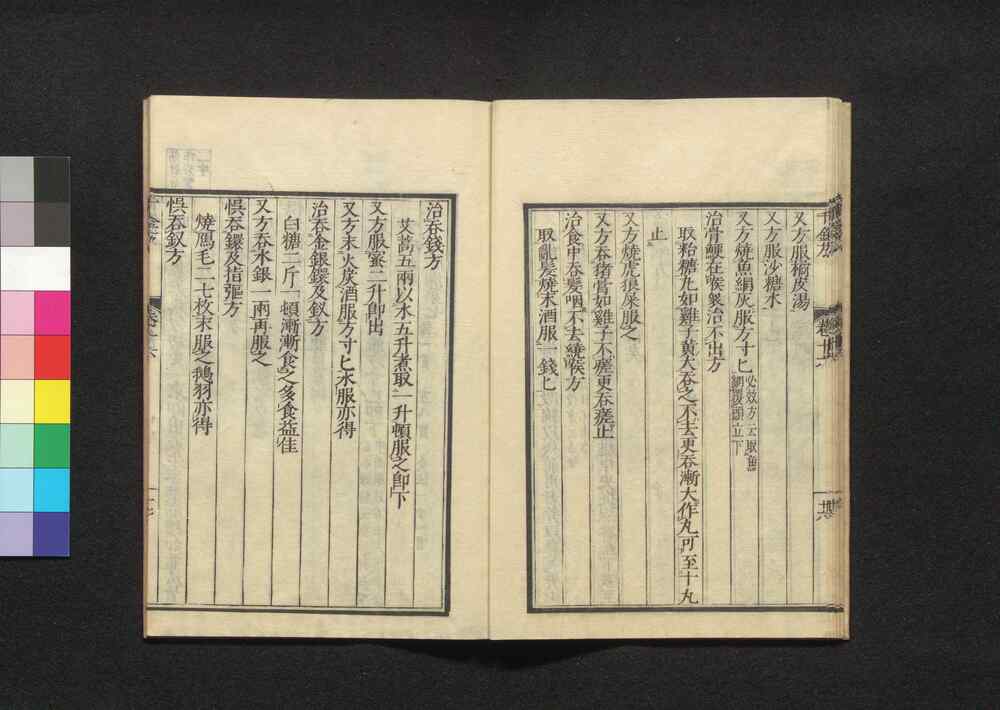 又方服橘皮湯
又方服沙糖水
又方燒魚網灰服方寸匕必效方云取魚網覆頭立下
治骨鯁在喉衆治不出方
取飴糖丸如雞子黃大吞之不去更吞漸大作丸可至十丸
止
又方燒虎狼屎服之
又方吞猪膏如雞子不瘥更吞瘥止
治食中吞髮咽不去繞喉方
取亂髮燒末酒服一錢匕
治吞錢方
艾蒿五兩以水五升煮取一升頓服之即下
又方服蜜二升即出
又方末火炭酒服方寸匕水服亦得
治吞金銀鐶及釵方
白糖二斤一頓漸漸食之多食益佳
又方吞水銀一兩再服之
悮吞鐶及指彄方
燒鴈毛二七枚末服之鵝羽亦得
悮吞釵方